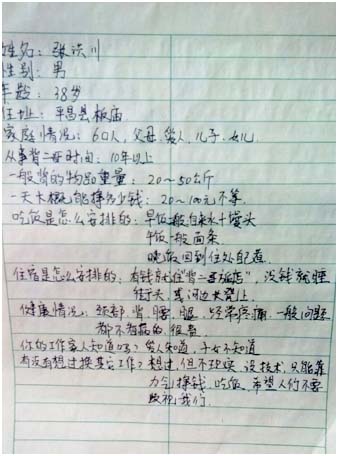 姓名：张洪川
性别：男
年龄：38岁
住址：平昌县板庙
家庭情况：6口人，父母，爱人，儿子，女儿
从事背二哥时间：10年以上
一般背的物品重量：20～50公斤
一天大概能挣多少钱：20～100元不等
吃饭是怎么安排的：早饭一般自来水+馒头
午饭一般面条
晚饭回到住处自己煮
住宿是怎么安排的：有钱就住"背二哥旅店"，没钱就睡
街天，或河边大凳上
健康情况：颈部，背，腰，腿，经常疼痛，一般问题
都不看医的，很贵
你的工作家人知道吗？爱人知道，子女不知道
有没有想过换其它工作？想过，但不现实，没技术，只能靠
力气挣钱，吃饭，希望人们不要
歧视我们